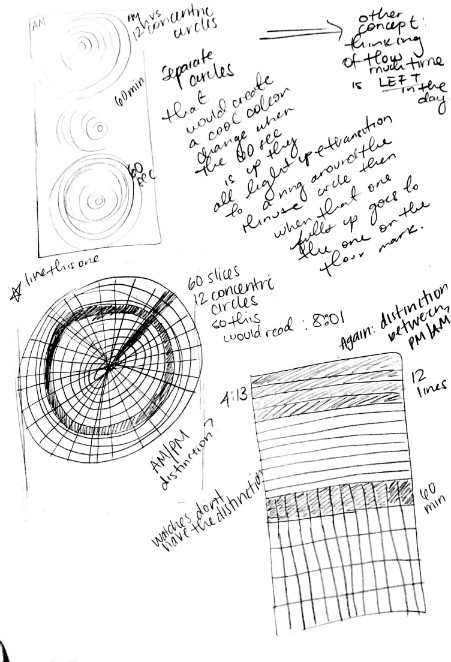 AM
PM
12 hrs
concentric
circles
60 min
60
sec
separate
circles
that
would create
a cool color
change when
the 60 sec
is up they
all light up + transition
to a ring around the
minute circle then
when that one
fills up goes to
the one on the
hour mark.
other
concept:
thinking
of how
much time
is LEFT
in the
day
like this one
60 slices
12 concentric
circles
so this
would read: 8:01
AM/PM
distinction?
watches don't
have the distinction
Again: distinction
between
PM/AM
4:13
12
lines
60
min